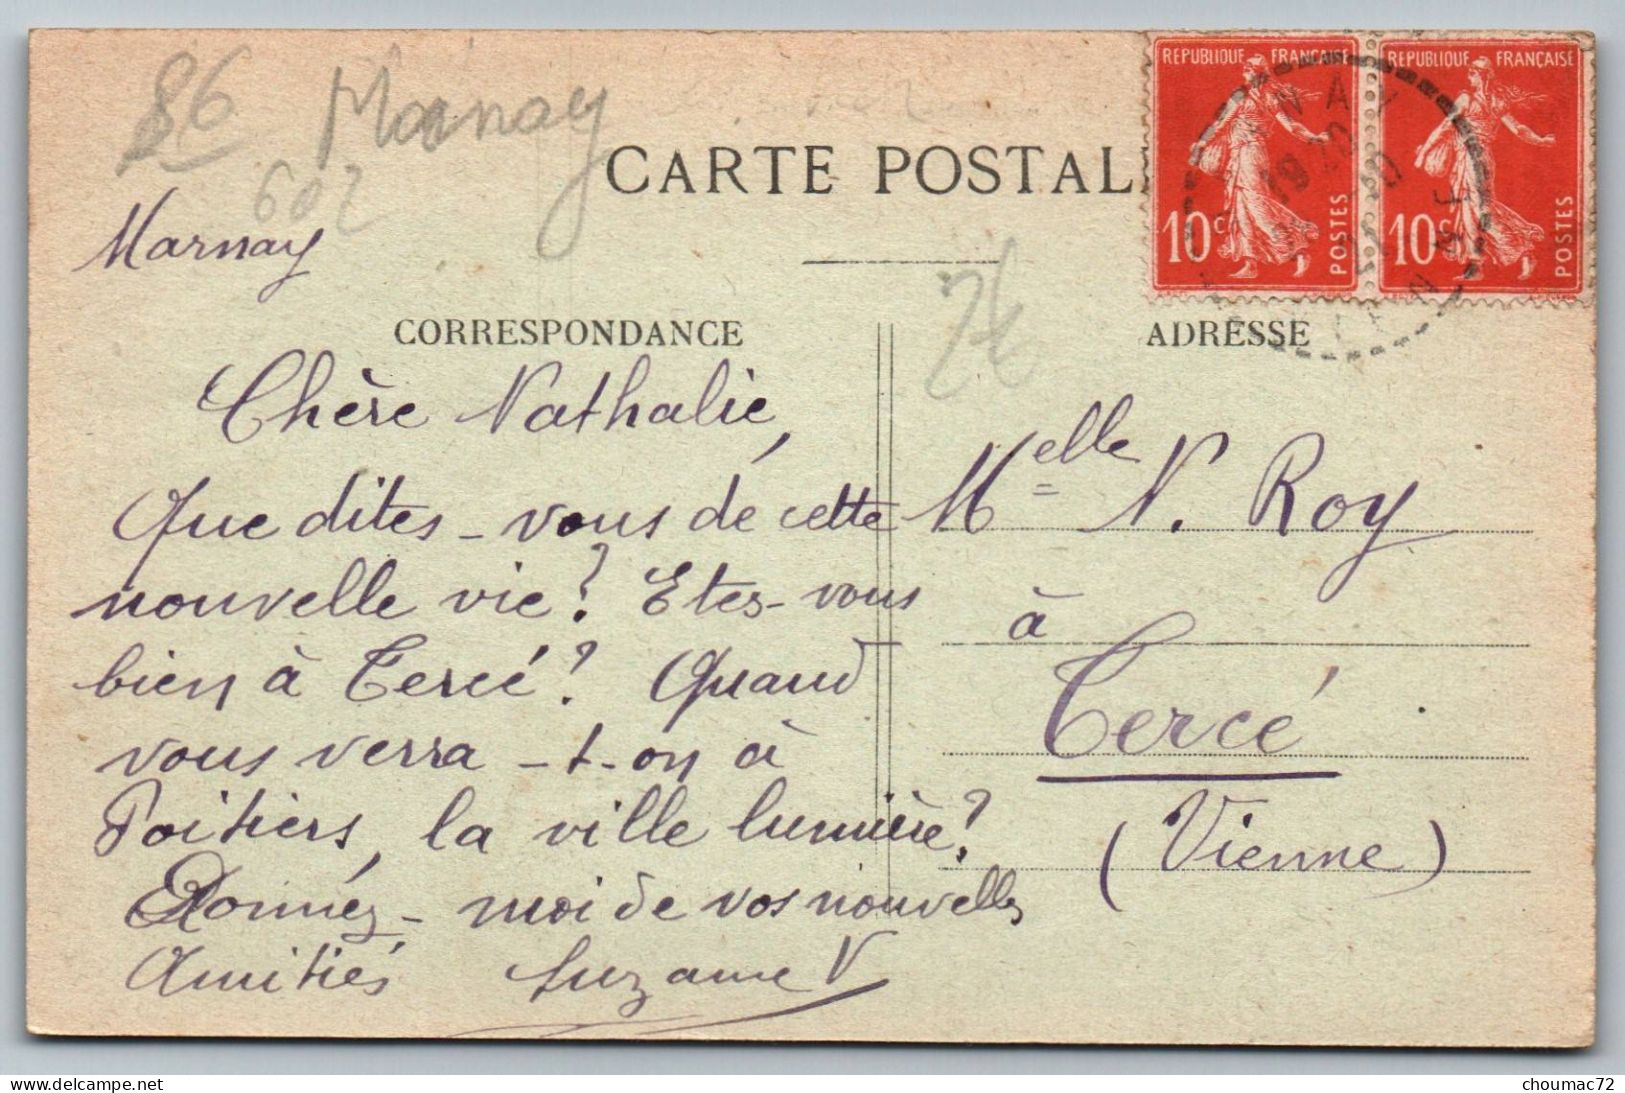 86 Marnay
602
CARTE POSTALE
Marnay
CORRESPONDANCE
Chère Nathalie,
Que dites-vous de cette
nouvelle vie? Etes-vous
bien à Tercé? Quand
vous verra-t-on à
Poitiers, la ville lumière?
Donnez-moi de vos nouvelles
Amitiés Suzanne V
2€
REPUBLIQUE FRANÇAISE
10c POSTES
REPUBLIQUE FRANÇAISE
10c POSTES
ADRESSE
Melle N. Roy
à
Tercé
(Vienne)
choumac72